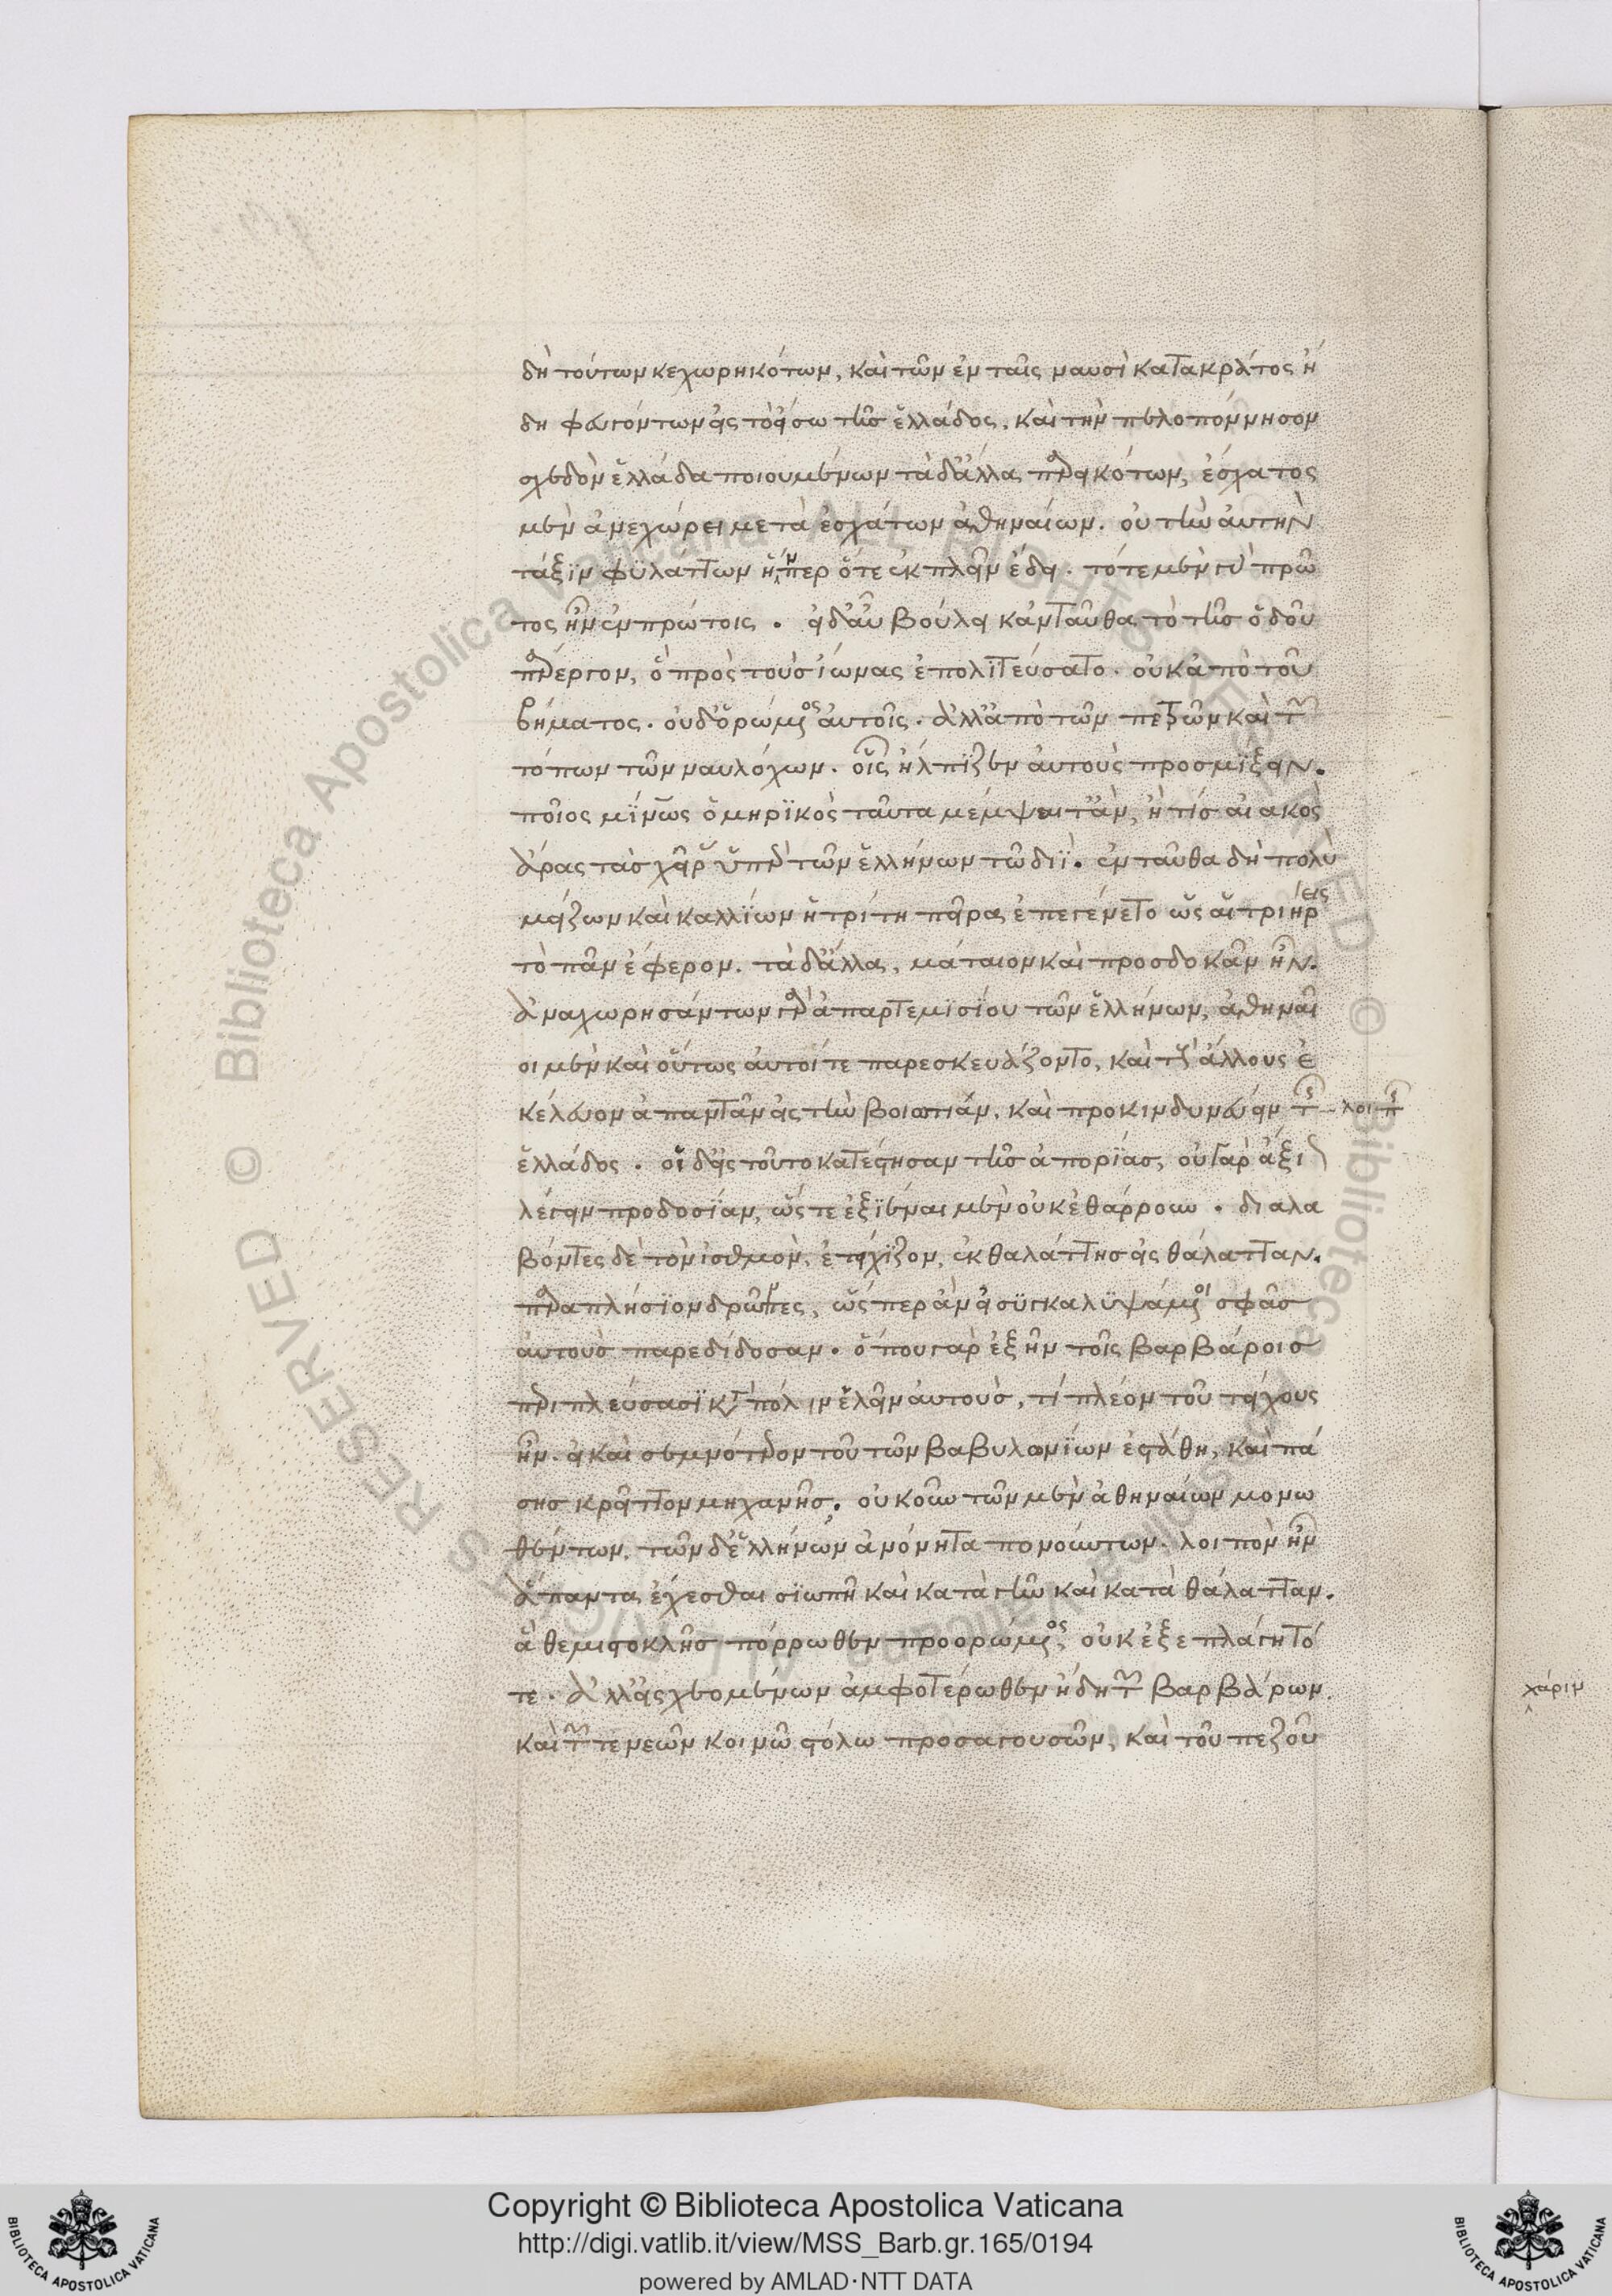 δὴ τούτων κεχωρηκότων, καὶ τῶν ἐν ταῖς ναυσὶ κατακράτος ἤ
δη φευγόντων εἰς τὸ εἴσω τῆς ἑλλάδος, καὶ τὴν πελοπόννησον
σχεδὸν ἑλλάδα ποιουμένων τὰ δ' ἄλλα παρεικότων, ἔσχατος
μὲν ἀνεχώρει μετὰ ἐσχάτων ἀθηναίων. οὐ τὴν αὐτὴν
τάξιν φυλάττων ἥνπερ ὅτε ἐκπλεῖν ἔδει. τότε μὲν γὰρ πρῶ
τος ἦν ἐν πρώτοις. εἰ δ' αὖ βούλει κἀνταῦθα τὸ τῆς ὁδοῦ
πάρεργον, ὃ πρὸς τοὺς ἴωνας ἐπολιτεύσατο. οὐκ ἀπὸ τοῦ
βήματος. οὐδ' ὁρώμενος αὐτοῖς. ἀλλ' ἀπὸ τῶν πετρῶν καὶ τῶν
τόπων τῶν ναυλόχων. οἷς ἤλπιζεν αὐτοὺς προσμίξειν.
ποῖος μίνως ὁμηρικὸς ταῦτα μέμψαιτ' ἂν, ἢ τίς αἰακὸς
ἄρας τὰς χεῖρας ὑπὲρ τῶν ἑλλήνων τῷ διΐ. ἐνταῦθα δὴ πολὺ
μείζων καὶ καλλίων ἡ τρίτη πεῖρα ἐπεγένετο ὡς αἱ τριήρεις
τὸ πᾶν ἔφερον. τὰ δ' ἄλλα, μάταιον καὶ προσδοκᾶν ἦν.
ἀναχωρησάντων γὰρ ἀπ' ἀρτεμισίου τῶν ἑλλήνων, ἀθηναῖ
οι μὲν καὶ οὕτως αὐτοί τε παρεσκευάζοντο, καὶ τοὺς ἄλλους ἐ
κέλευον ἀπαντᾶν εἰς τὴν βοιωτίαν, καὶ προκινδυνεύειν τῆς λοιπῆς
ἑλλάδος. οἱ δ' εἰς τοῦτο κατέστησαν τῆς ἀπορίας, οὐ γὰρ ἄξιον
λέγειν προδοσίαν, ὥστε ἐξιέναι μὲν οὐκ ἐθάρρουν. διαλα
βόντες δὲ τὸν ἰσθμὸν, ἐτείχιζον, ἐκ θαλάττης εἰς θάλατταν.
παραπλήσιον δρῶντες, ὥσπερ ἂν εἰ συγκαλυψάμενοι σφᾶς
αὐτοὺς παρεδίδοσαν. ὅπου γὰρ ἐξῆν τοῖς βαρβάροις
περιπλεύσασι κατὰ πόλιν ἑλεῖν αὐτοὺς, τί πλέον τοῦ τείχους
ἦν. εἰ καὶ σεμνότερον τοῦ τῶν βαβυλωνίων ἐστάθη, καὶ πά
σης κρεῖττον μηχανῆς. οὐκοῦν τῶν μὲν ἀθηναίων μονω
θέντων, τῶν δ' ἑλλήνων ἀνόνητα πονούντων. λοιπὸν ἦν
ἅπαντα ἔχεσθαι σιωπῇ καὶ κατὰ γῆν καὶ κατὰ θάλατταν.
ἃ θεμιστοκλῆς πόρρωθεν προορώμενος οὐκ ἐξεπλάγη τό
τε. ἀλλ' εἰσχεομένων ἀμφοτέρωθεν ἤδη τῶν βαρβάρων.
καὶ τῶν τε νεῶν κοινῷ στόλῳ προσαγουσῶν, καὶ τοῦ πεζοῦ
χάριν
Copyright © Biblioteca Apostolica Vaticana
http://digi.vatlib.it/view/MSS_Barb.gr.165/0194
powered by AMLAD·NTT DATA